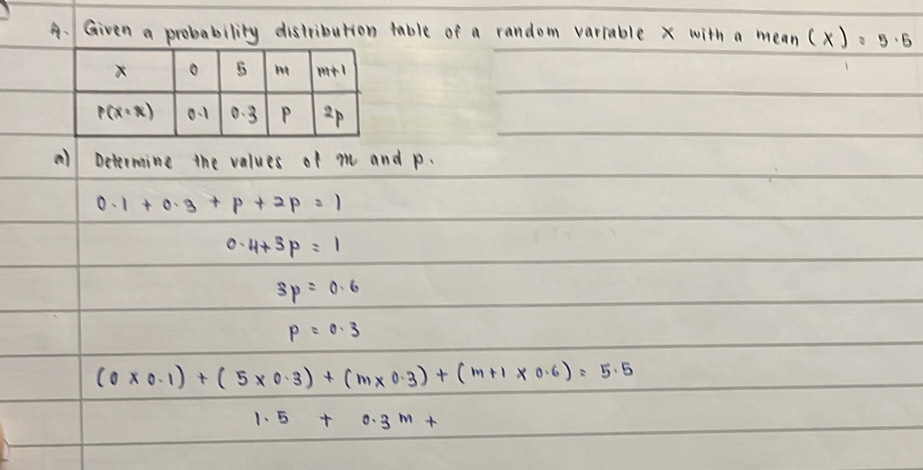 4. Given a probability distribution table of a random variable X with a mean (X) = 5.5
x 0 5 m m+1
P(X=x) 0.1 0.3 P 2p
a) Determine the values of m and p.
0.1 + 0.3 + p + 2p = 1
0.4+3p = 1
3p = 0.6
p = 0.3
(0 x 0.1) + (5 x 0.3) + (m x 0.3) + (m+1 x 0.6) = 5.5
1.5 + 0.3 m +